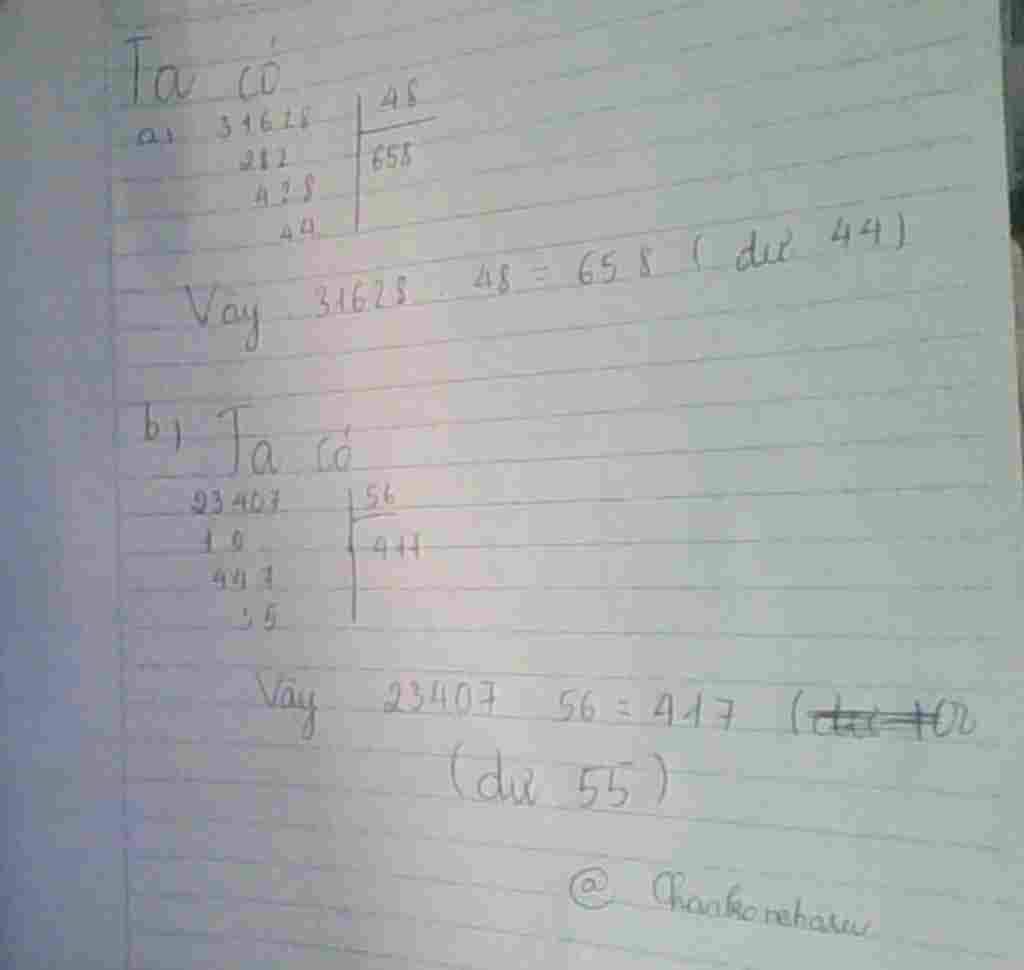 Ta có
a) 31628 48
282 658
428
44
Vay 31628 : 48 = 658 ( dư 44)
b) Ta có
23407 56
10 417
447
55
Vây 23407 56 = 417 (
(dư 55)
@ Chankoneharu